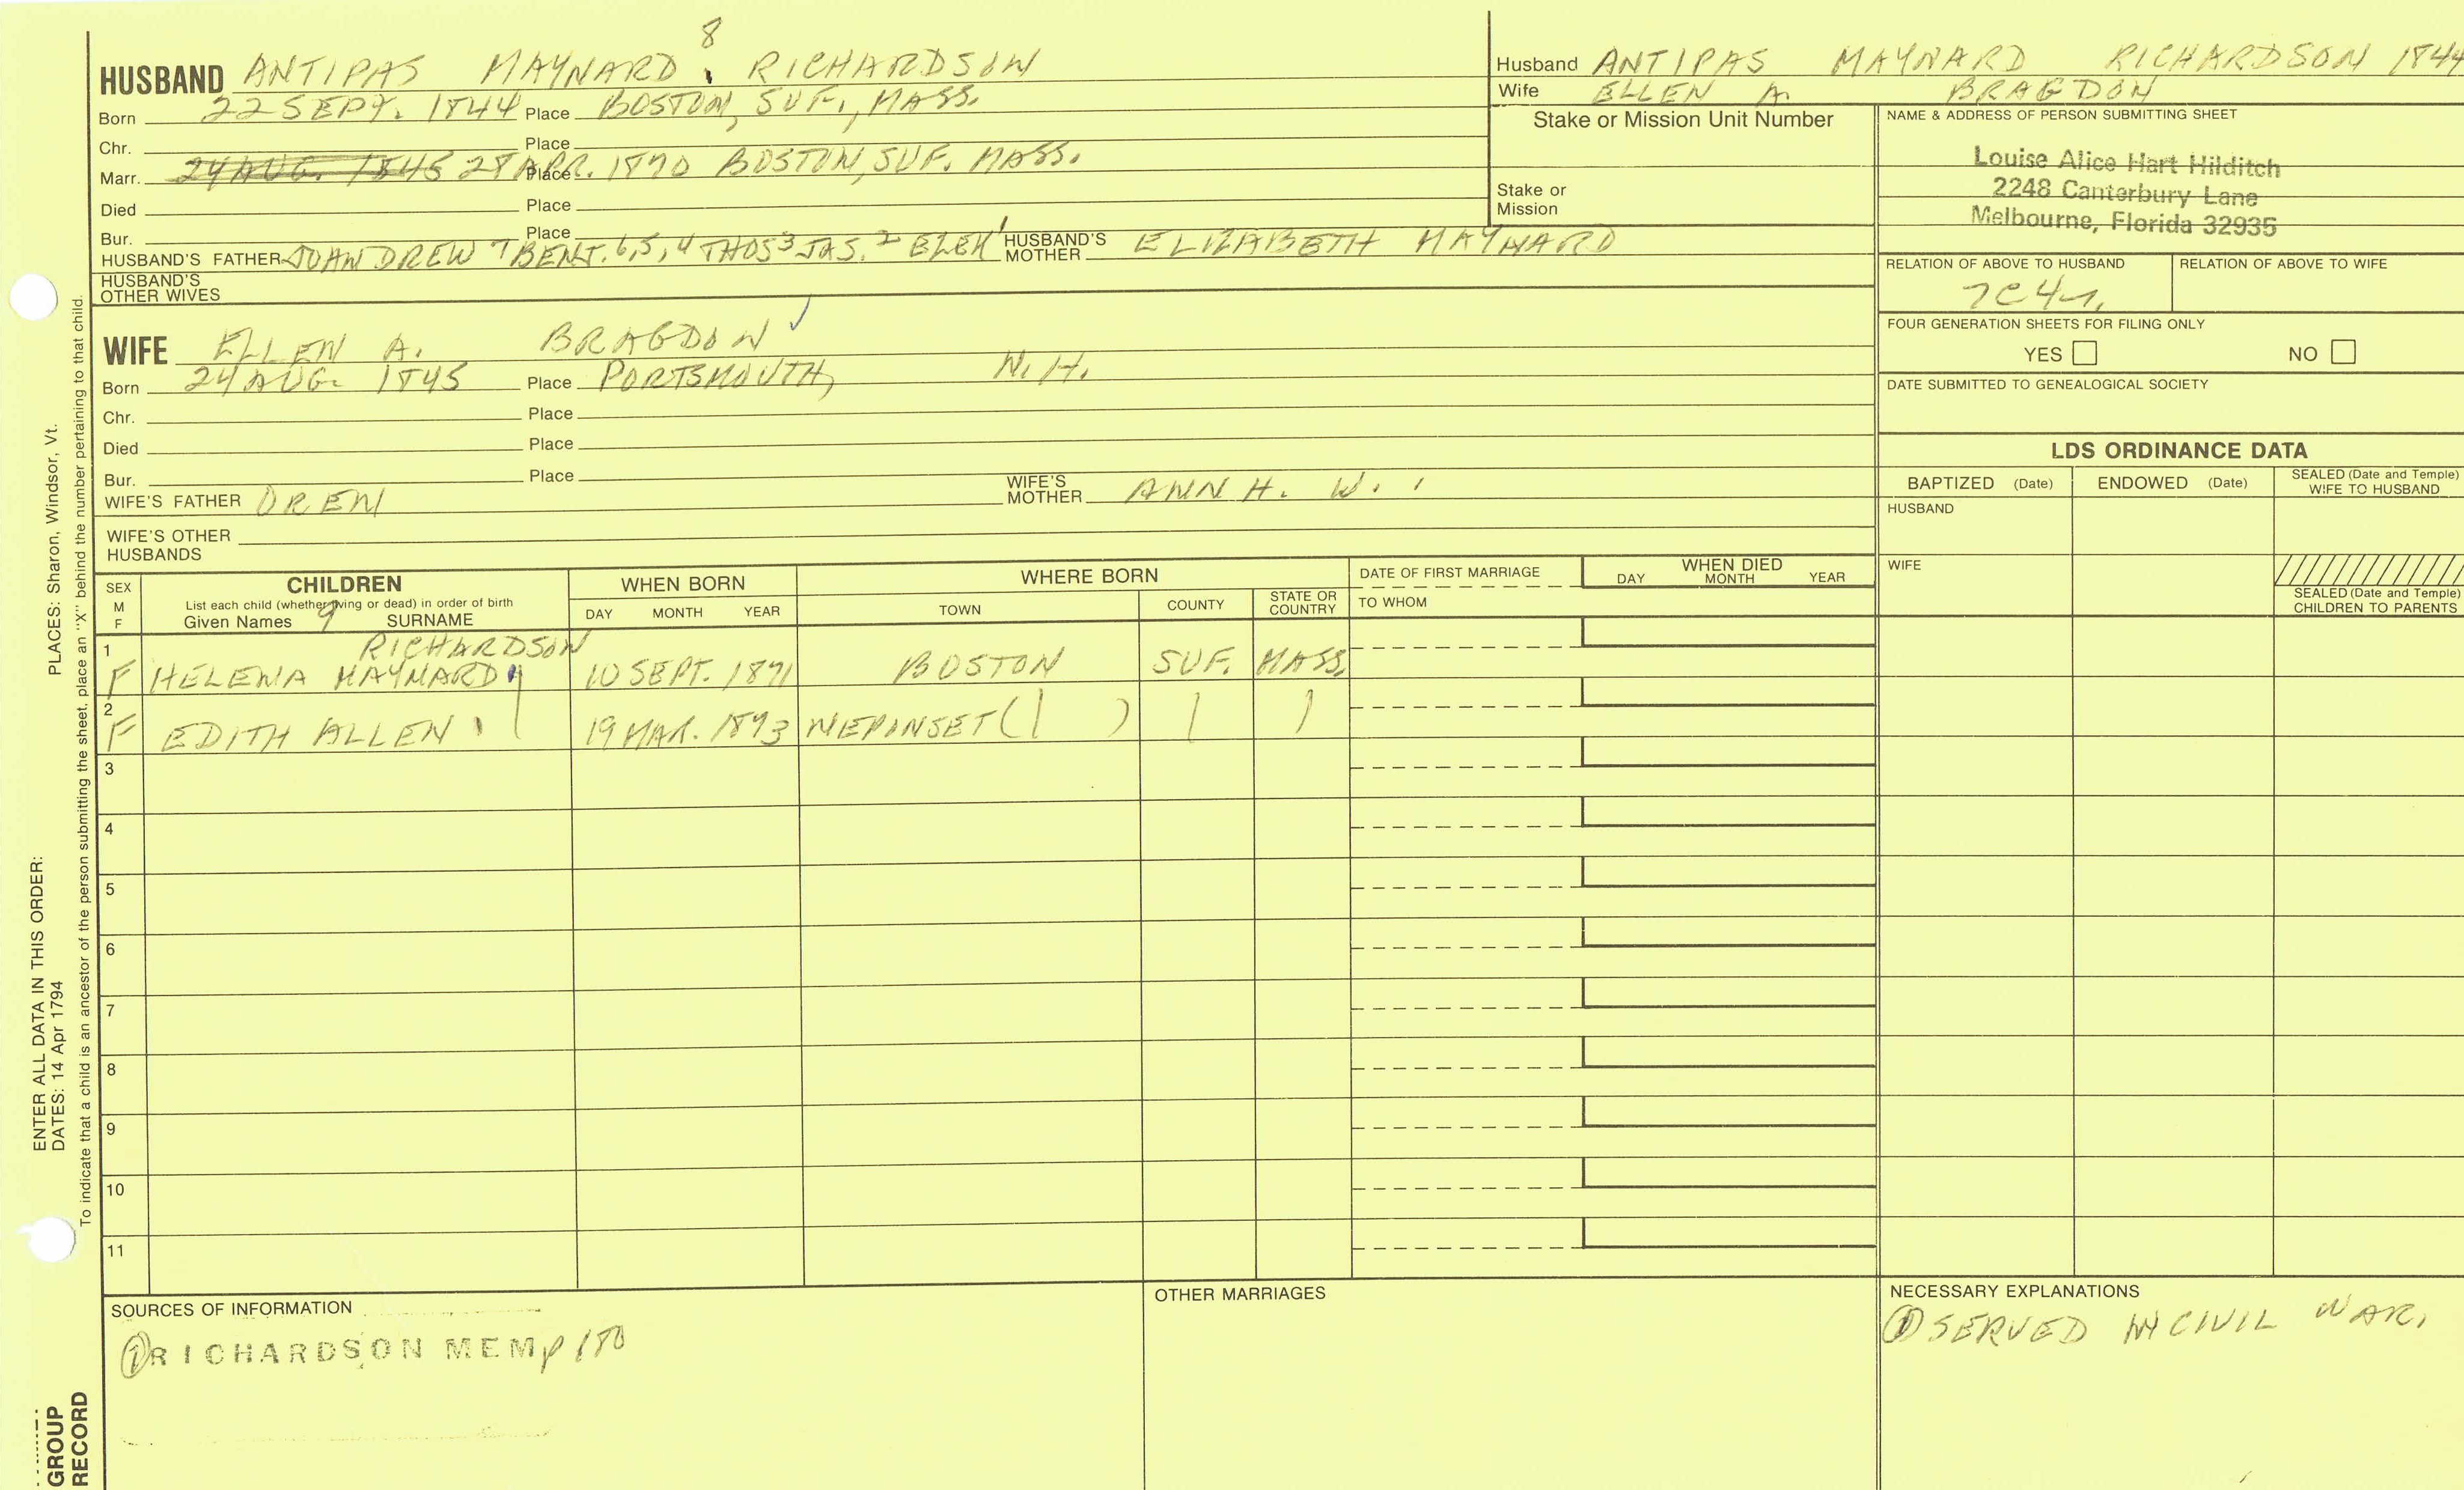 8
HUSBAND ANTIPAS MAYNARD RICHARDSON
Born 22 SEPT. 1844 Place BOSTON, SUF., MASS.
Chr. Place
Marr. 24 AUG. 1845 28 APR. 1870 Place BOSTON, SUF. MASS.
Died Place
Bur. Place
HUSBAND'S FATHER ANDREW 7 BENJ. 6,5,4 THOS 3 JAS. 2 EZEK 1 HUSBAND'S MOTHER ELIZABETH MAYNARD
HUSBAND'S OTHER WIVES
Husband ANTIPAS MAYNARD RICHARDSON 1844
Wife ELLEN A. BRAGDON
Stake or Mission Unit Number
Stake or Mission
NAME & ADDRESS OF PERSON SUBMITTING SHEET
Louise Alice Hart Hilditch
2248 Canterbury Lane
Melbourne, Florida 32935
RELATION OF ABOVE TO HUSBAND RELATION OF ABOVE TO WIFE
7C4r.
FOUR GENERATION SHEETS FOR FILING ONLY
YES NO
DATE SUBMITTED TO GENEALOGICAL SOCIETY
WIFE ELLEN A. BRAGDON
Born 24 AUG. 1845 Place PORTSMOUTH, N.H.
Chr. Place
Died Place
Bur. Place
WIFE'S FATHER OREN WIFE'S MOTHER ANN H. W.
WIFE'S OTHER HUSBANDS
LDS ORDINANCE DATA
BAPTIZED (Date) ENDOWED (Date) SEALED (Date and Temple) WIFE TO HUSBAND
HUSBAND
WIFE
SEALED (Date and Temple) CHILDREN TO PARENTS
SEX M F
CHILDREN
List each child (whether living or dead) in order of birth
Given Names 9 SURNAME
WHEN BORN
DAY MONTH YEAR
WHERE BORN
TOWN COUNTY STATE OR COUNTRY
DATE OF FIRST MARRIAGE
TO WHOM
WHEN DIED
DAY MONTH YEAR
RICHARDSON
1 F HELENA MAYNARD 10 SEPT. 1871 BOSTON SUF. MASS.
2 F EDITH ALLEN 19 MAR. 1873 NEPINSET ( )
3
4
5
6
7
8
9
10
11
SOURCES OF INFORMATION
① RICHARDSON MEM p 180
OTHER MARRIAGES
NECESSARY EXPLANATIONS
① SERVED IN CIVIL WAR.
ENTER ALL DATA IN THIS ORDER:
DATES: 14 Apr 1794 PLACES: Sharon, Windsor, Vt.
To indicate that a child is an ancestor of the person submitting the sheet, place an "X" behind the number pertaining to that child.
GROUP
RECORD